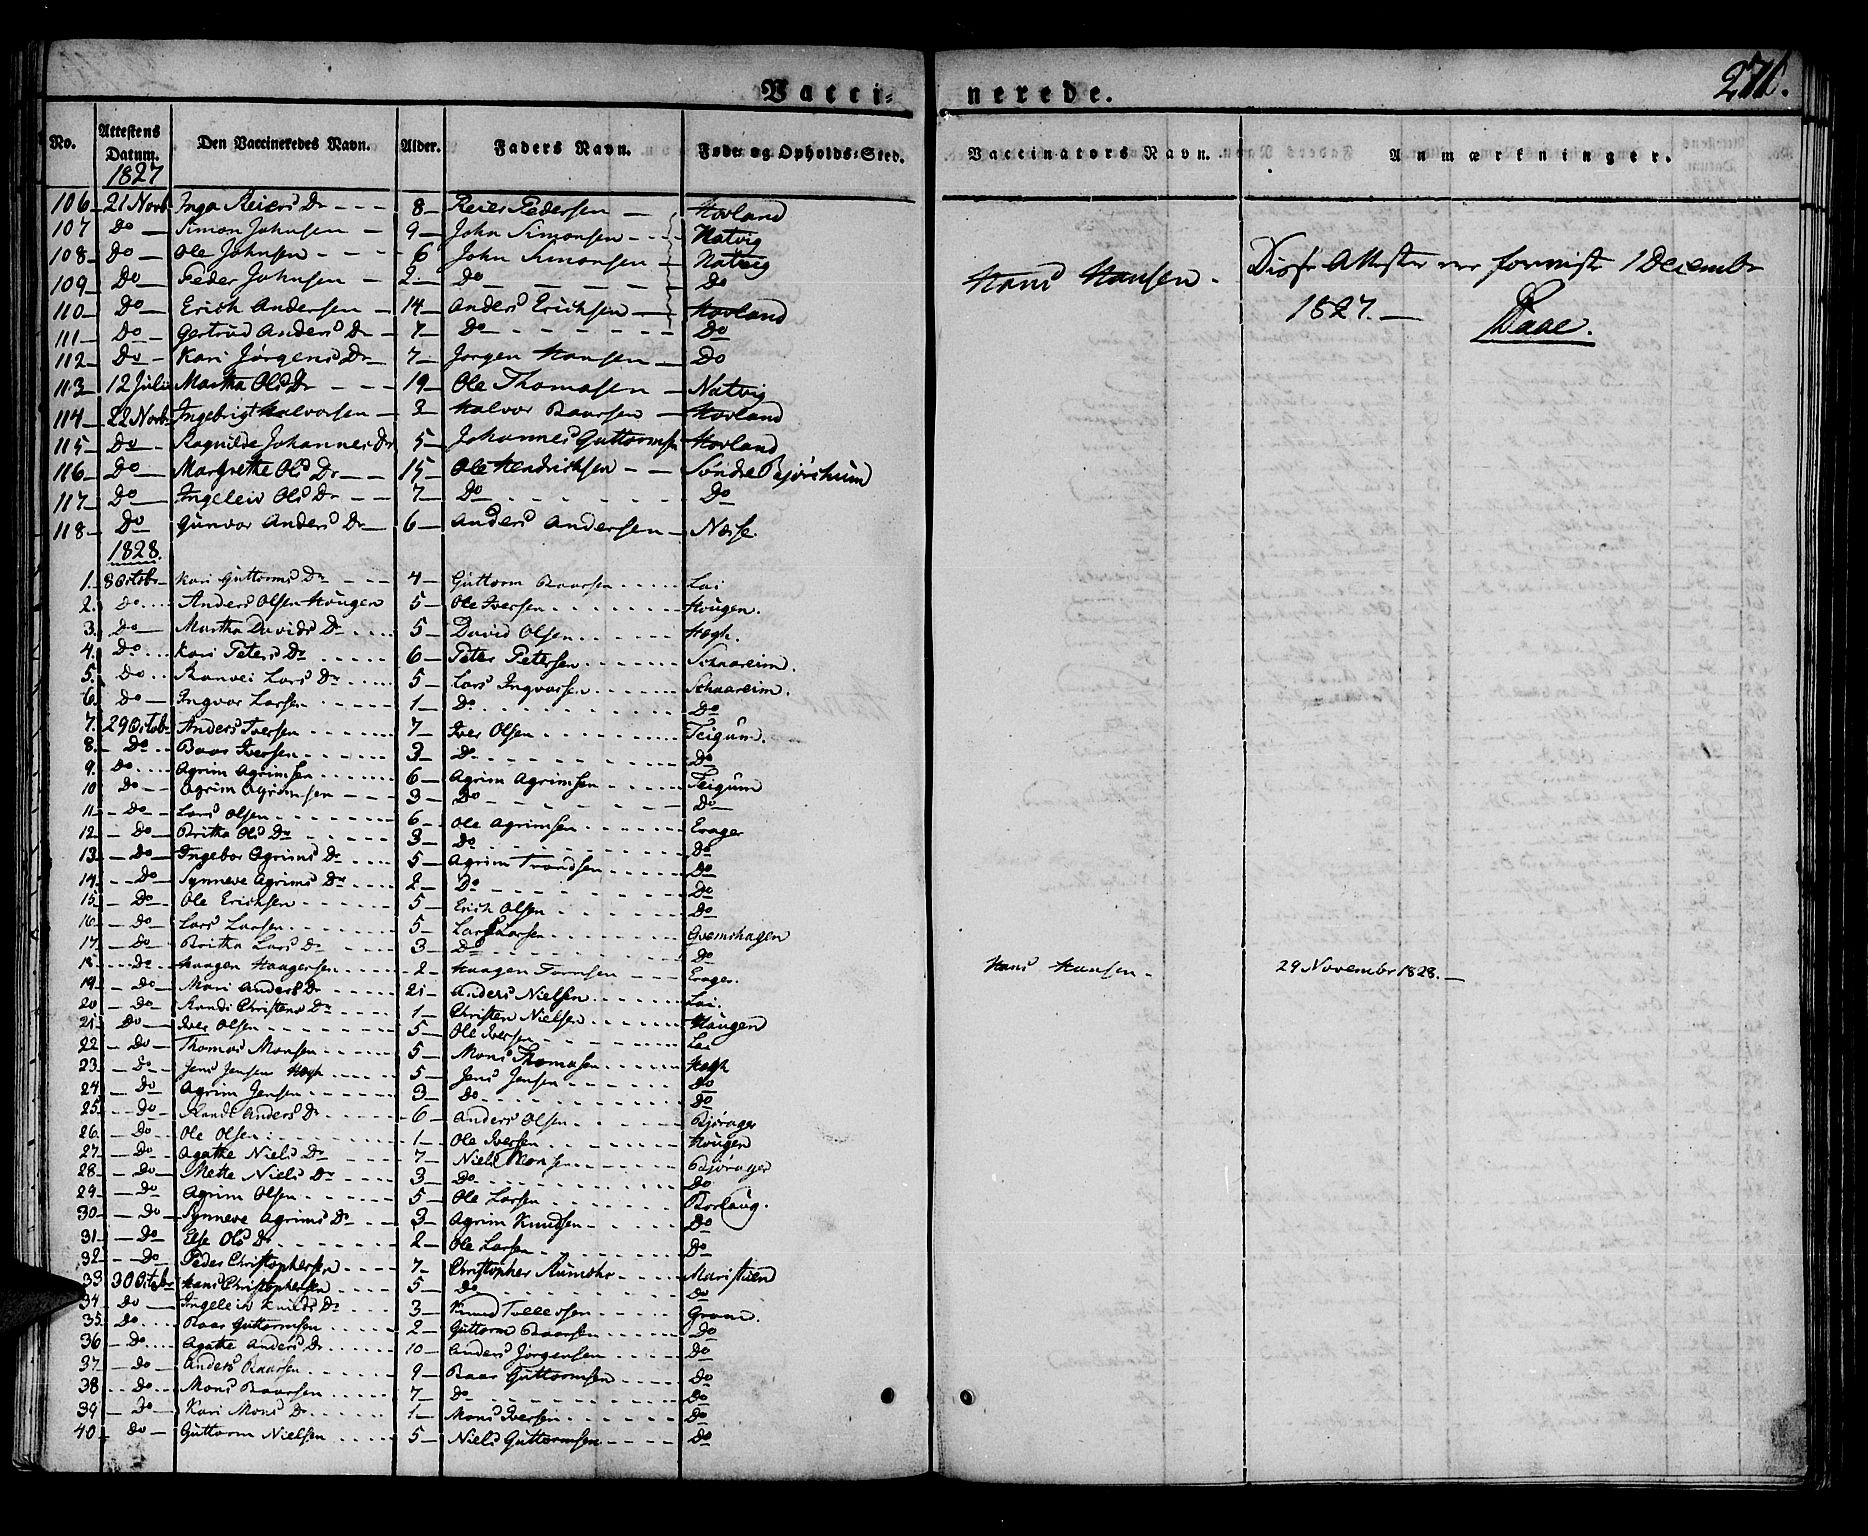 Vacci= nerede.
271.
No. Attestens Datum. Den Vaccineredes Navn. Alder. Faders Navn. Føde= og Opholds=Sted. Vaccinators Navn. Anmærkninger.
1827
106 21 Novb Inga Reiers Dr 8 Reier Pedersen Hovland
107 Do Simon Johnsen 9 John Simonsen Natvig
108 Do Ole Johnsen 6 John Simonsen Natvig
109 Do Peder Johnsen 2 Do Do
Hans Hansen
110 Do Erich Andersen 14 Anders Erichsen Hovland
1 Decembr 1827. Daae.
111 Do Gertrud Anders Dr 7 Do Do
112 Do Kari Jørgens Dr 7 Jørgen Hansen Do
113 12 Juli Martha Ols Dr 19 Ole Thomasen Natvig
114 22 Novb Ingebrigt Halvorsen 2 Halvor Baarsen Hovland
115 Do Ragnilde Johannes Dr 5 Johannes Guttormsen Hovland
116 Do Margrethe Ols Dr 15 Ole Hendrichsen Søndre Bjørshum
117 Do Ingeleiv Ols Dr 7 Do Do
118 Do Gunvor Anders Dr 6 Anders Andersen Næsse
1828.
1. 8 Octobr Kari Guttorms Dr 4 Guttorm Baarsen Lai
2. Do Anders Olsen Hougen 5 Ole Iversen Hougen.
3. Do Martha Davids Dr 5 David Olsen Hægh.
4. Do Kari Peters Dr 6 Peter Petersen Schaareim.
5. Do Ranvei Lars Dr 5 Lars Ingvorsen Schaareim.
6. Do Ingvor Larsen 1 Do Do
7. 29 Octob Anders Iversen 7 Iver Olsen Teigum.
8. Do Baar Iversen 3 Do Do
9. Do Agrim Agrimsen 6 Agrim Agrimsen Teigum
10 Do Agrim Agrimsen 3 Do Do
11 Do Lars Olsen 6 Ole Agrimsen Erager
12. Do Britha Ols Dr 3 Do Do
13. Do Ingebor Agrims Dr 5 Agrim Trondsen Do
14. Do Synneve Agrims Dr 2 Do Do
15. Do Ole Erichsen 5 Erich Olsen Do
16. Do Lars Larsen 5 Lars Larsen Qvemshagen
17. Do Britha Lars Dr 3 Do Do
18. Do Haagen Haagensen 2 Haagen Tormsen Erager.
Hans Hansen 29 Novembr 1828.
19. Do Mari Anders Dr 21 Anders Nielsen Lai.
20 Do Randi Christens Dr 1 Christen Nielsen Hougen
21 Do Iver Olsen 5 Ole Iversen Lai
22 Do Thomas Monsen 5 Mons Thomasen Hægh
23. Do Jens Jensen Hægh 5 Jens Jensen Do
24. Do Agrim Jensen 3 Do Do
25. Do Randi Anders Dr 6 Anders Olsen Bjørager
26. Do Ole Olsen 1 Ole Iversen Hougen
27. Do Agathe Niels Dr 7 Niels Hansen Bjørager
28. Do Mette Niels Dr 3 Do Do
29. Do Agrim Olsen 5 Ole Larsen Borlaug.
30. Do Synneve Agrims Dr 3 Agrim Knudsen Do
31. Do Else Ols Dr 2 Ole Larsen Do
32. Do Peder Christophersen 7 Christopher Rumohr Maristuen
33 30 Octobr Hans Christophersen 5 Do Do
34. Do Ingeleiv Knuds Dr 3 Knud Tollevsen Grove.
35. Do Baar Guttormsen 2 Guttorm Baarsen Do
36 Do Agathe Anders Dr 10 Anders Jørgensen Do
37. Do Anders Baarsen 9 Baar Guttormsen Do
38 Do Mons Baarsen 7 Do Do
39 Do Kari Mons Dr 1 Mons Iversen Do
40 Do Guttorm Nielsen 5 Niels Guttormsen Do